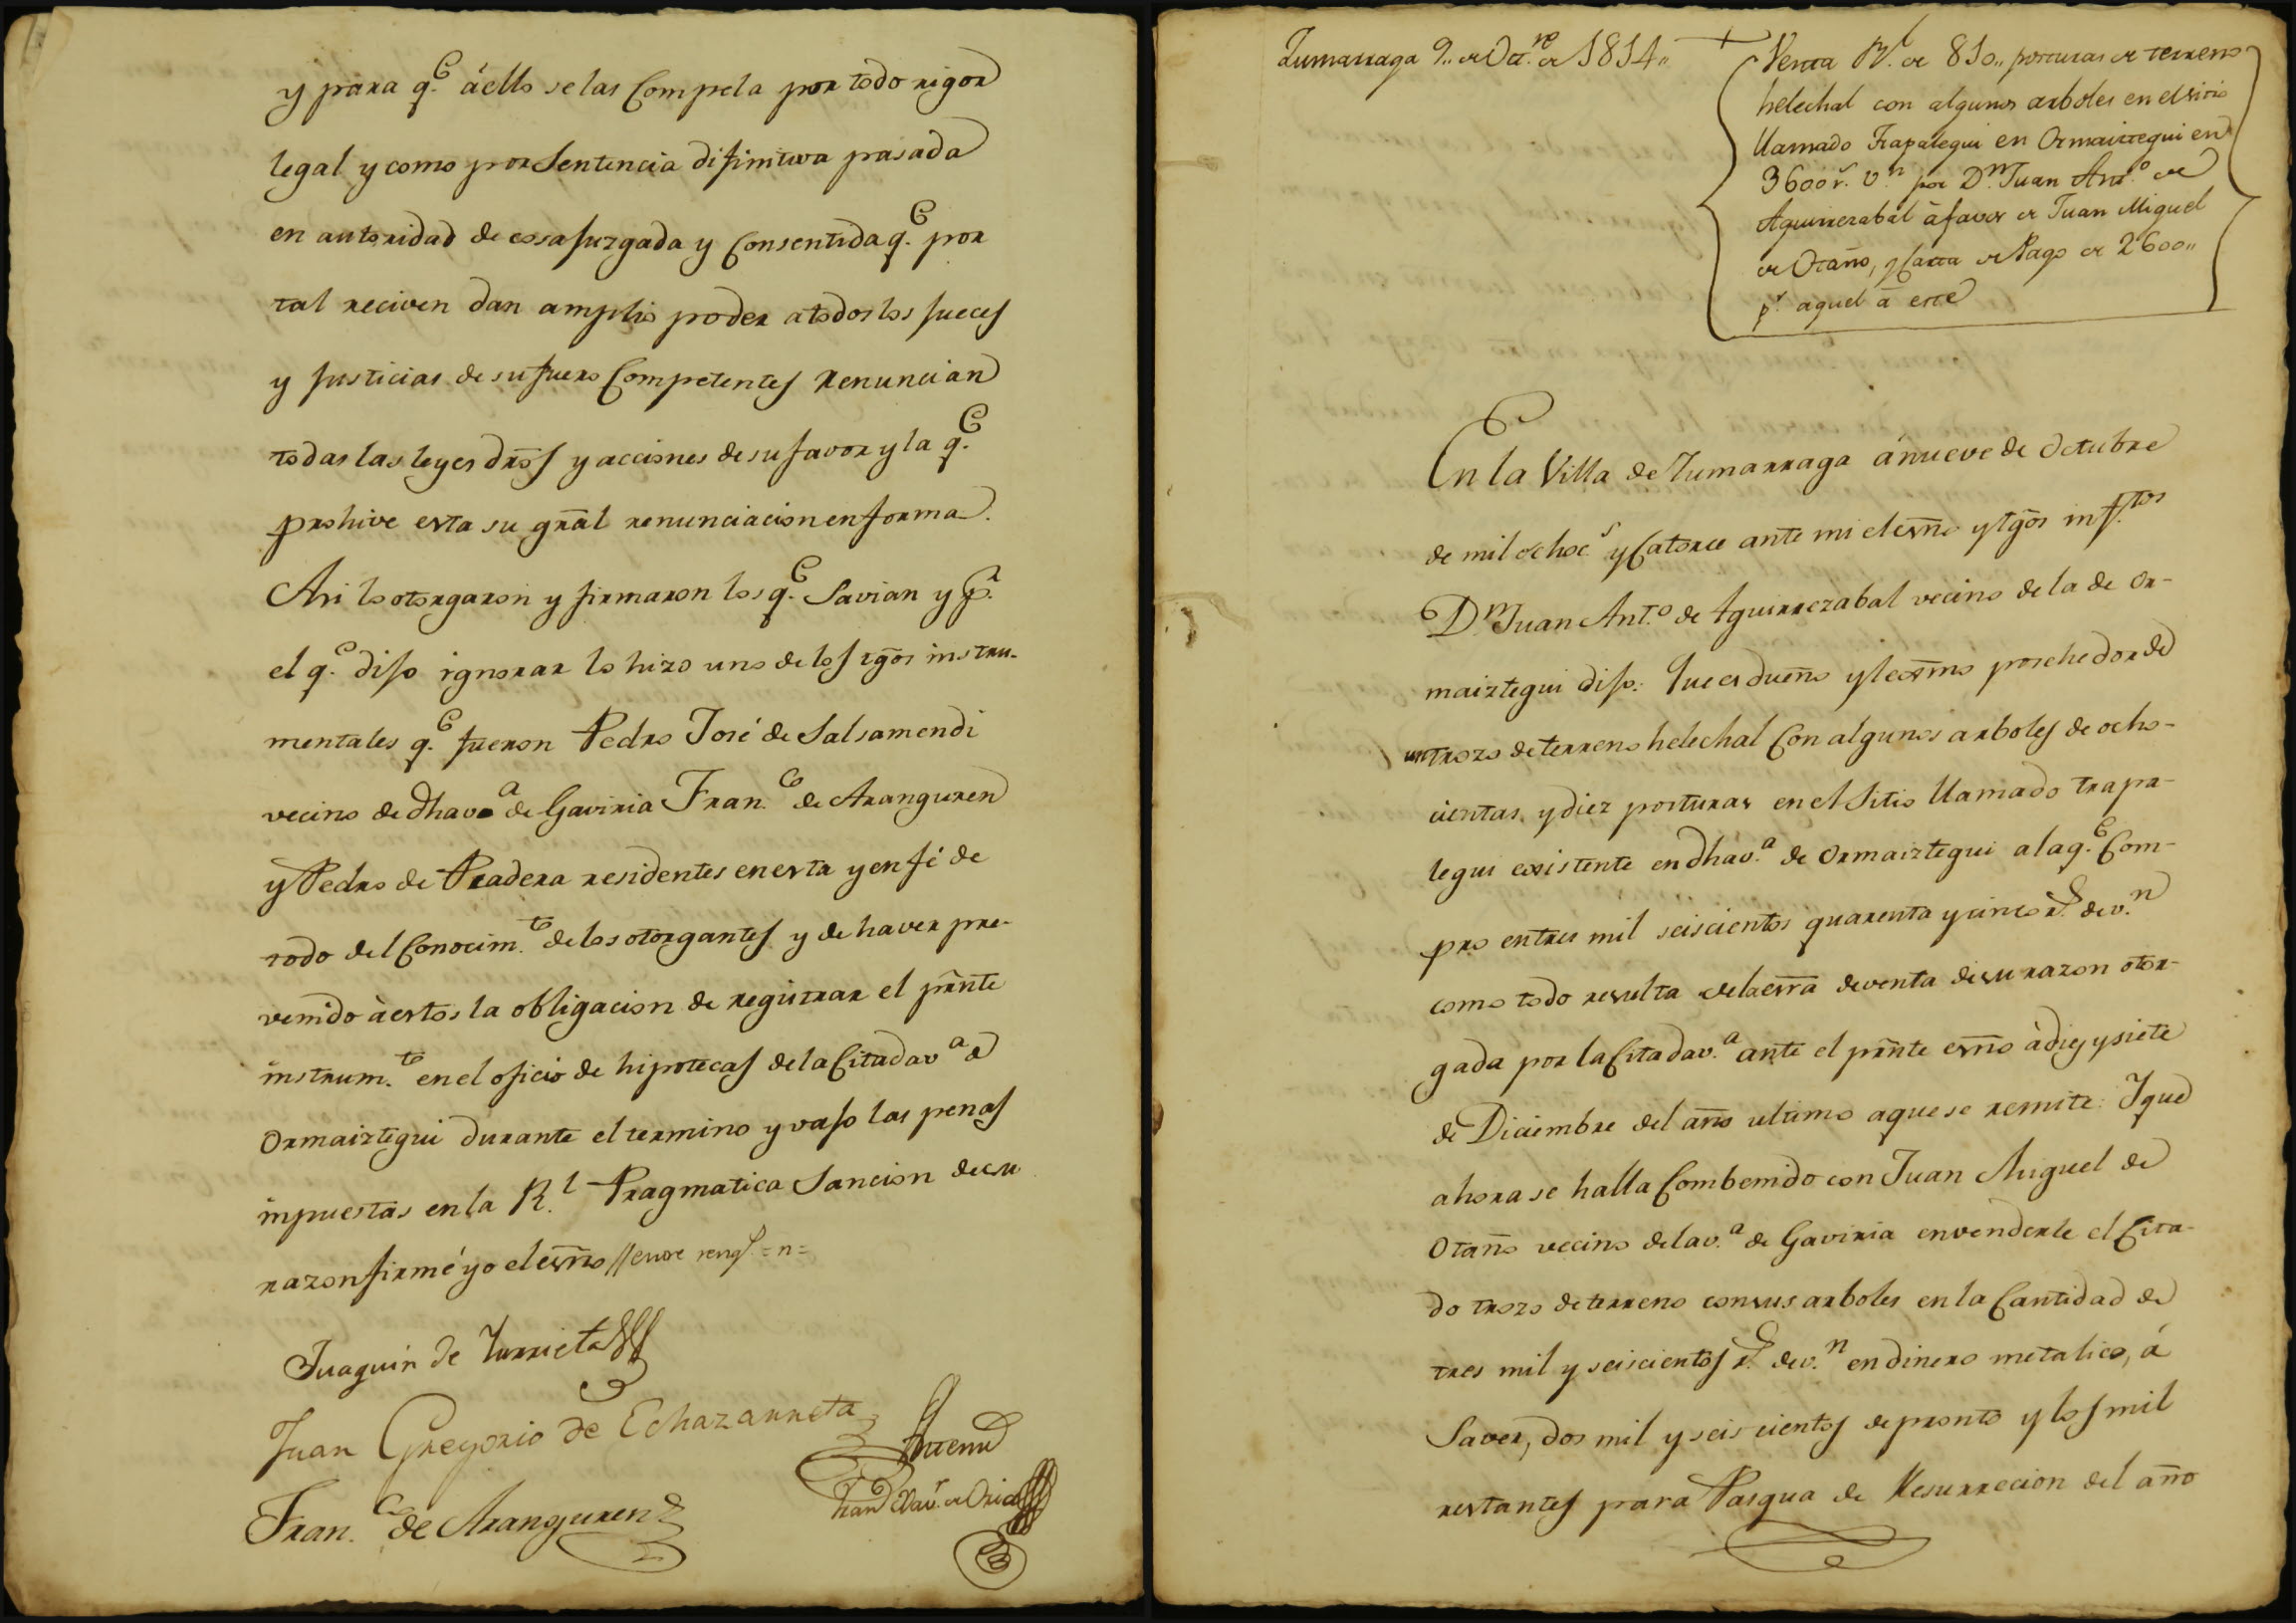 y para q.e á ello se las Compela por todo rigor
legal y como por Sentencia difinitiva pasada
en autoridad de cosa Juzgada y Consentida q.e por
tal reciven dan amplio poder a todos los Jueces
y Justicias de su fuero Competentes Renuncian
todas las leyes dr̄os y acciones de su favor y la q.e
prohive esta su gr̄al renunciacion en forma.
Asi lo otorgaron y firmaron los q.e Savian y p.r
el q.e dijo ignorar lo hizo uno de los tg̃os instru-
mentales q.e fueron Pedro José de Salsamendi
vecino de dha v.a de Gaviria Fran.co de Aranguren
y Pedro de Pradera residentes en esta y en fé de
todo del Conocim.to de los otorgantes y de haver pre-
venido à estos la obligacion de registrar el pr̃nte
instrum.to en el oficio de hipotecas de la Citada v.a d
Ormaiztegui durante el termino y vajo las penas
inpuestas en la R.l Pragmatica Sancion de su
razon firmé yo el esr̃no // entre reng.s = n =
Juaquin de Yurrieta
Juan Gregorio de Echazarreta
Antemi
Fran.co de Aranguren
Fran.co Xav.r de Oria
Zumarraga 9,, de Oct.re de 1814,,
Venta R.l de 810,, posturas de terreno
helechal con algunos arboles en el sitio
llamado Trapalegui en Ormaiztegui en
3600 r.s v.n por D.n Juan Ant.o de
Aguirrezabal à favor de Juan Miguel
de Otaño, y Carta de Pago de 2600,,
p.r aquel à este
En la Villa de Zumarraga á nueve de Octubre
de mil ochoc.s y Catorce ante mi el esr̃no y tg̃os inf.tos
D.n Juan Ant.o de Aguirrezabal vecino de la de Or-
maiztegui dijo: Que es dueño y lexmo posehedor de
un trozo de terreno helechal Con algunos arboles de ocho-
cientas y diez posturas en el Sitio llamado trapa-
legui existente en dha v.a de Ormaiztegui a la q.e Com-
pro en tres mil seiscientos quarenta y cinco r.s de v.n
como todo resulta de la esr̃a de venta de su razon otor-
gada por la Citada v.a ante el pr̃nte esr̃no à diez y siete
de Diciembre del año ultimo a que se remite: Y que
ahora se halla Combenido con Juan Miguel de
Otaño vecino de la v.a de Gaviria en venderle el Cita-
do trozo de terreno con sus arboles en la Cantidad de
tres mil y seiscientos r.s de v.n en dinero metalico, á
Saver, dos mil y seis cientos de pronto y los mil
restantes para Pasqua de Resurrecion del año